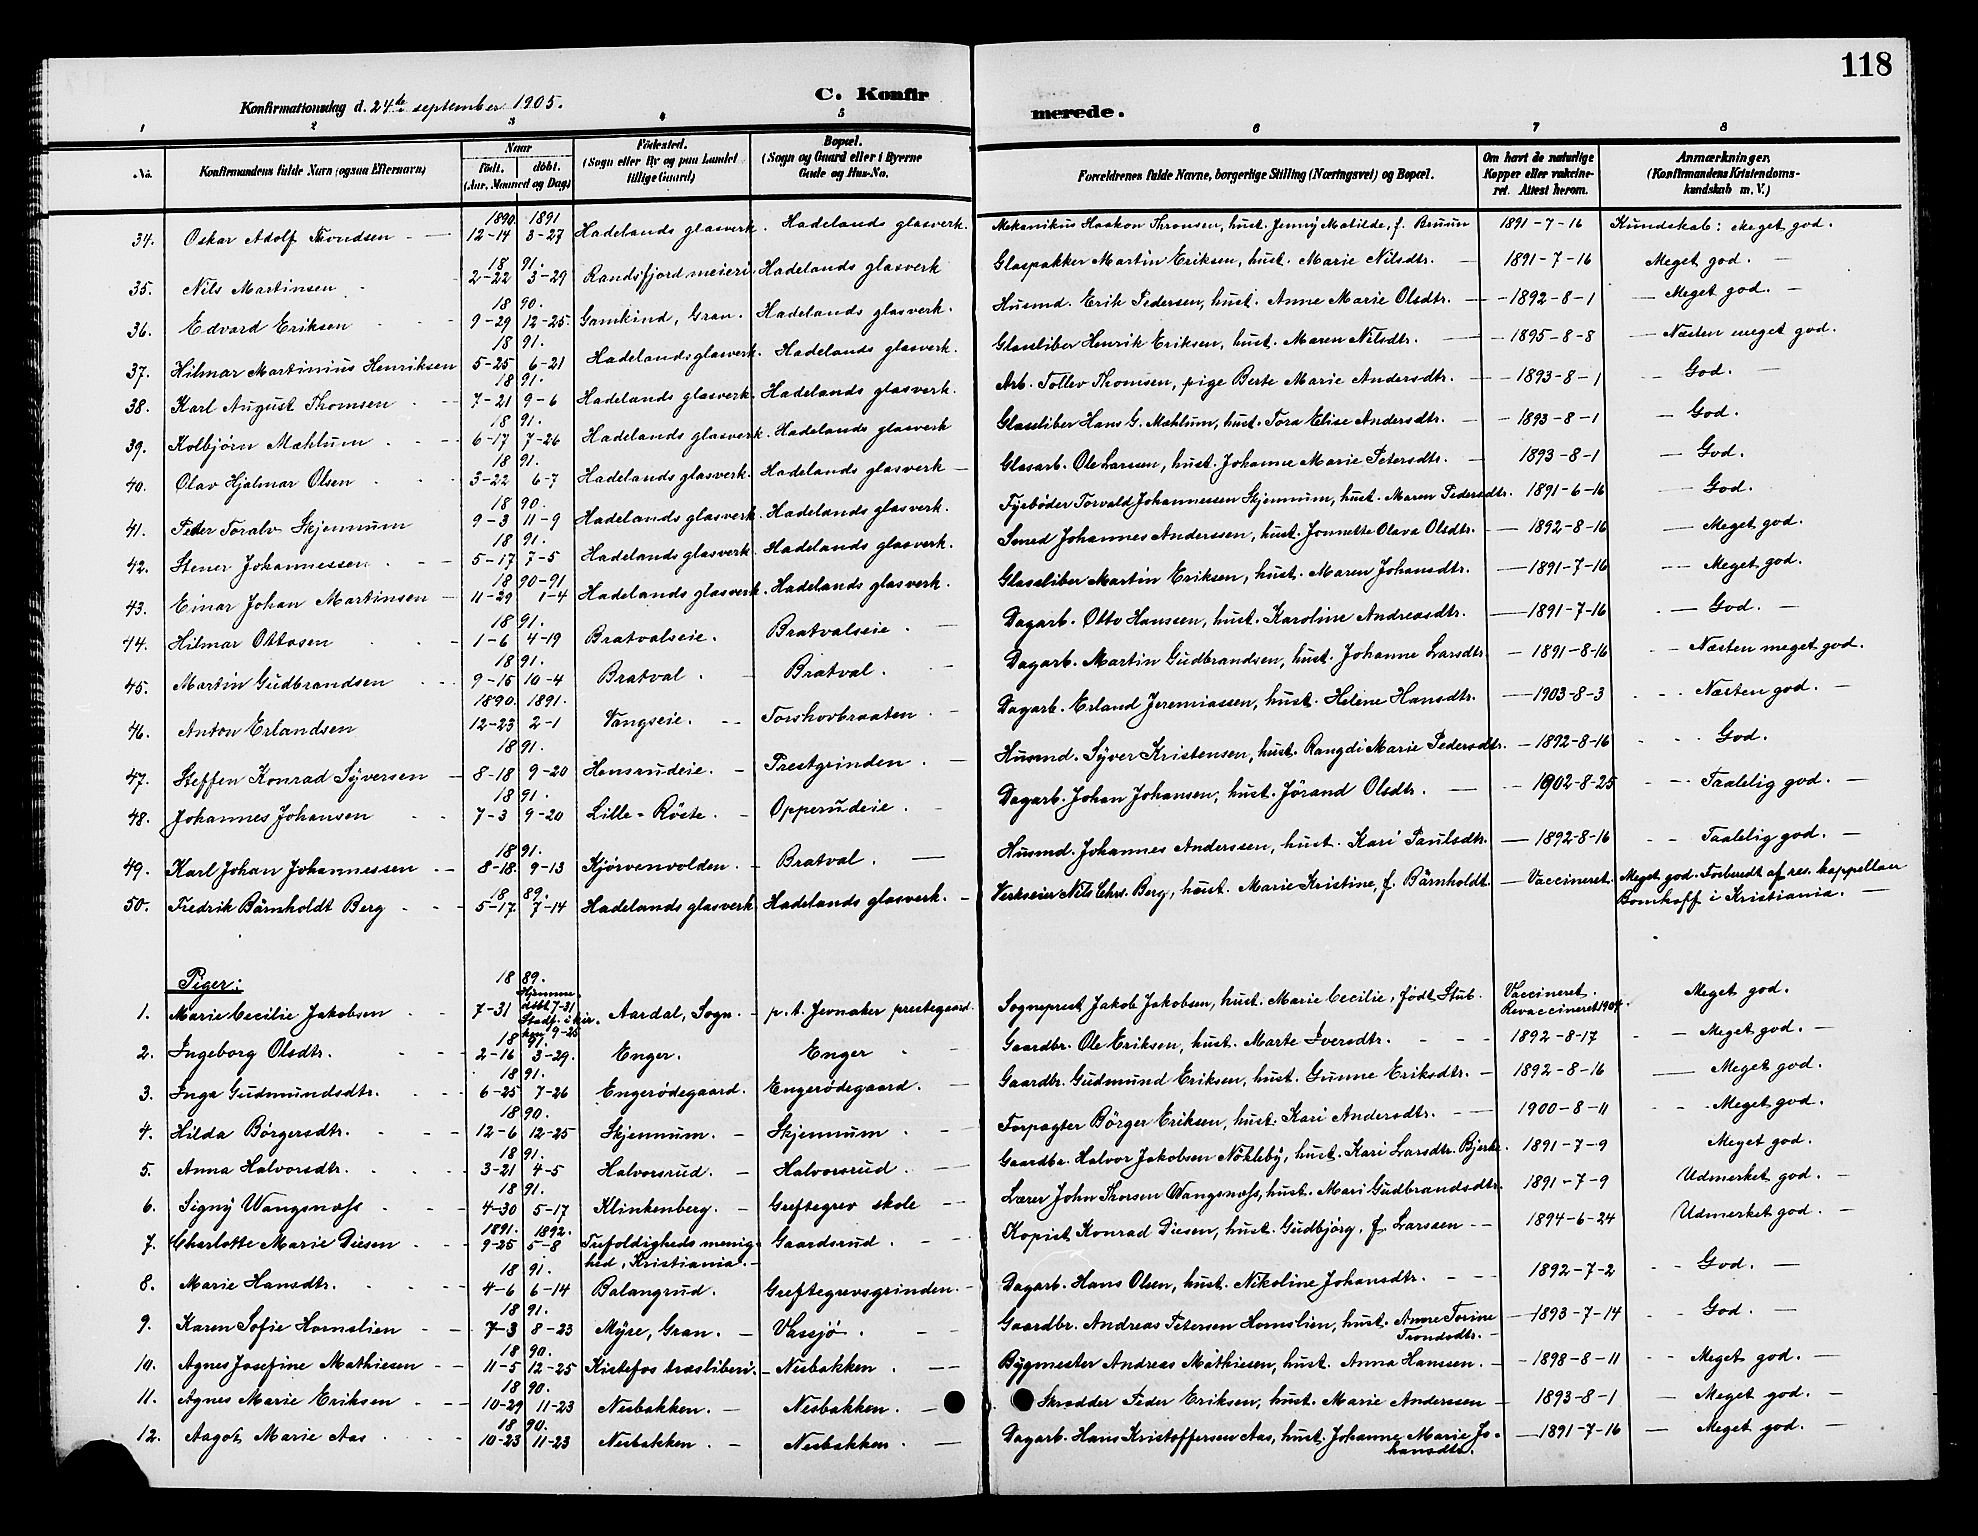 118
Konfirmationsdag d. 24de september 1905.
C. Konfir
merede.
1 2 3 4 5 6 7 8
No. Konfirmandens fulde Navn (ogsaa Efternavn)
Naar
Født. døbt.
(Aar, Maaned og Dag)
Fødested.
(Sogn eller By og paa Landet
tillige Gaard)
Bopæl.
(Sogn og Gaard eller i Byerne
Gade og Hus-No.
Forældrenes fulde Navne, borgerlige Stilling (Næringsvei) og Bopæl.
Om havt de naturlige
Kopper eller vakcine-
ret. Attest herom.
Anmærkninger.
(Konfirmandens Kristendoms-
kundskab m. V.)
1890. 1891
34. Oskar Adolf Trondsen 12-14 3-27 Hadelands glasverk. Hadelands glasverk. Mekanikus Haakon Thronsen, hust. Jenny Matilde, f. Bruun 1891-7-16 Kundskab: Meget god.
18 91.
35. Nils Martinsen 2-22 3-29 Randsfjord meieri Hadelands glasverk Glaspakker Martin Eriksen, hust. Marie Nilsdtr. 1891-7-16 Meget god.
18 90.
36. Edvard Eriksen 9-29 12-25. Gamkind, Gran. Hadelands glasverk. Husmd. Erik Pedersen, hust. Anne Marie Olsdtr. 1892-8-1 Meget god.
18 91.
37. Hilmar Martinius Henriksen 5-25 6-21 Hadelands glasverk. Hadelands glasverk. Glassliber Henrik Eriksen, hust. Maren Nilsdtr. 1895-8-8 Næsten meget god.
18 91.
38. Karl August Thomsen 7-21 9-6 Hadelands glasverk. Hadelands glasverk. Arb. Tollev Thomsen, pige Berte Marie Andersdtr. 1893-8-1 God.
18 91.
39. Kolbjørn Mæhlum 6-17 7-26 Hadelands glasverk. Hadelands glasverk Glassliber Hans G. Mæhlum, hust. Tora Elise Andersdtr. 1893-8-1 God.
18 91.
40. Olav Hjalmar Olsen 3-22 6-7 Hadelands glasverk. Hadelands glasverk Glasarb. Ole Larsen, hust. Johanne Marie Petersdtr. 1893-8-1 God.
18 90.
41. Peder Toralv Skjennum 9-3 11-9 Hadelands glasverk. Hadelands glasverk. Fyrbøder Torvald Johannessen Skjennum, hust. Maren Pedersdtr. 1891-6-16 God.
18 91.
42. Stener Johannessen 5-17 7-5 Hadelands glasverk. Hadelands glasverk. Smed Johannes Anderssen, hust. Jonnette Olava Olsdtr. 1892-8-16 Meget god.
18 90-91
43. Einar Johan Martinsen 11-29 1-4 Hadelands glasverk. Hadelands glasverk. Glassliber Martin Eriksen, hust. Maren Johansdtr. 1891-7-16 Meget god.
18 91.
44. Hilmar Ottosen 1-6 4-19 Bratvalseie. Bratvalseie. Dagarb. Otto Hanssen, hust. Karoline Andreasdtr. 1891-7-16 God.
18 91.
45. Martin Gudbrandsen 9-15 10-4 Bratval. Bratval. Dagarb. Martin Gudbrandsen, hust. Johanne Larsdtr. 1891-8-16 Næsten meget god.
1890. 1891.
46. Anton Erlandsen 12-23 2-1 Vangseie. Torshovbraaten. Dagarb. Erland Jeremiassen, hust. Helene Hansdtr. 1903-8-3 Næsten god.
18 91.
47. Steffen Konrad Syversen 8-18 9-20 Honsrudeie. Prestgrinden. Husmd. Syver Kristensen, hust. Rangdi Marie Pedersdtr. 1892-8-16 God.
18 91.
48. Johannes Johansen 7-3 9-20 Lille-Røste. Opperudeie. Dagarb. Johan Johansen, hust. Jørand Olsdtr. 1902-8-25 Taalelig god.
18 91.
49. Karl Johan Johannessen 8-18. 9-13 Kjørvenvolden. Bratval. Husmd. Johannes Anderssen, hust. Kari Paulsdtr. 1892-8-16 Taalelig god.
18 89.
50. Fredrik Bärnholdt Berg 5-17. 7-14 Hadelands glasverk Hadelands glasverk. Verkseier Nils Chrs. Berg, hust. Marie Kristine, f. Bärnholdt. Vaccineret. Meget god. Forberedt af res. kappellan
Bomhoff i Kristiania.
Piger:
18 89.
1. Marie Cecilie Jakobsen 7-31 Hjemme-
døbt 7-31
Stadf. i kir-
ken 9-25 Aardal, Sogn. p.t. Jevnaker prestegaard. Sogneprest Jakob Jakobsen, hust. Marie Cecilie, født Stub. Vaccineret.
Revaccineret 1904. Meget god.
18 91.
2. Ingeborg Olsdtr. 2-16 3-29. Enger. Enger Gaardbr. Ole Eriksen, hust. Marte Iversdtr. 1892-8-17 Meget god.
18 91.
3. Inga Gudmundsdtr. 6-25 7-26 Engerødegaard. Engerødegaard. Gaardbr. Gudmund Eriksen, hust. Gunne Eriksdtr. 1892-8-16 Meget god.
18 90.
4. Hilda Børgersdtr. 12-6 12-25 Skjennum. Skjennum Forpagter Børger Eriksen, hust. Kari Andersdtr. 1900-8-11 Meget god.
18 91.
5. Anna Halvorsdtr. 3-21 4-5 Halvorsrud. Halvorsrud. Gaardbr. Halvor Jakobsen Nökleby, hust. Kari Larsdtr. Bjerke. 1891-7-9 Meget god.
18 91.
6. Signy Wangsnæss 4-30 5-17 Klinkenberg. Greftegrev skole Lærer John Thorsen Wangsnæss, hust. Mari Gudbrandsdtr. 1891-7-9 Udmerket god.
1891. 1892.
7. Charlotte Marie Diesen 9-25 5-8 Trefoldigheds menig-
hed, Kristiania. Gaardsrud. Kopist Konrad Diesen, hust. Gudbjørg, f. Larssen 1894-6-24 Udmerket god.
18 91.
8. Marie Hansdtr. 4-6 6-14 Balangrud. Greftegrevsgrinden. Dagarb. Hans Olsen, hust. Nikoline Johansdtr. 1892-7-2 God.
18 91.
9. Karen Sofie Hornslien 7-3 8-23 Myre, Gran. Vassjø. Gaardbr. Andreas Petersen Hornslien, hust. Anne Torine
Trondsdtr. 1893-7-14 God.
18 90.
10. Agnes Josefine Mathiesen 11-5 12-25 Kistefos træsliberi. Nesbakken. Bygmester Andreas Mathiesen, hust. Anna Hanssen. 1898-8-11 Meget god.
18 90.
11. Agnes Marie Eriksen 10-29 11-23 Nesbakken. Nesbakken. Skrædder Peder Eriksen, hust. Marie Anderssen 1893-8-1 Meget god.
18 90.
12. Aagot Marie Aas 10-23 11-23 Nesbakken. Nesbakken. Dagarb. Hans Kristoffersen Aas, hust. Johanne Marie Jo-
hansdtr. 1891-7-16 Meget god.